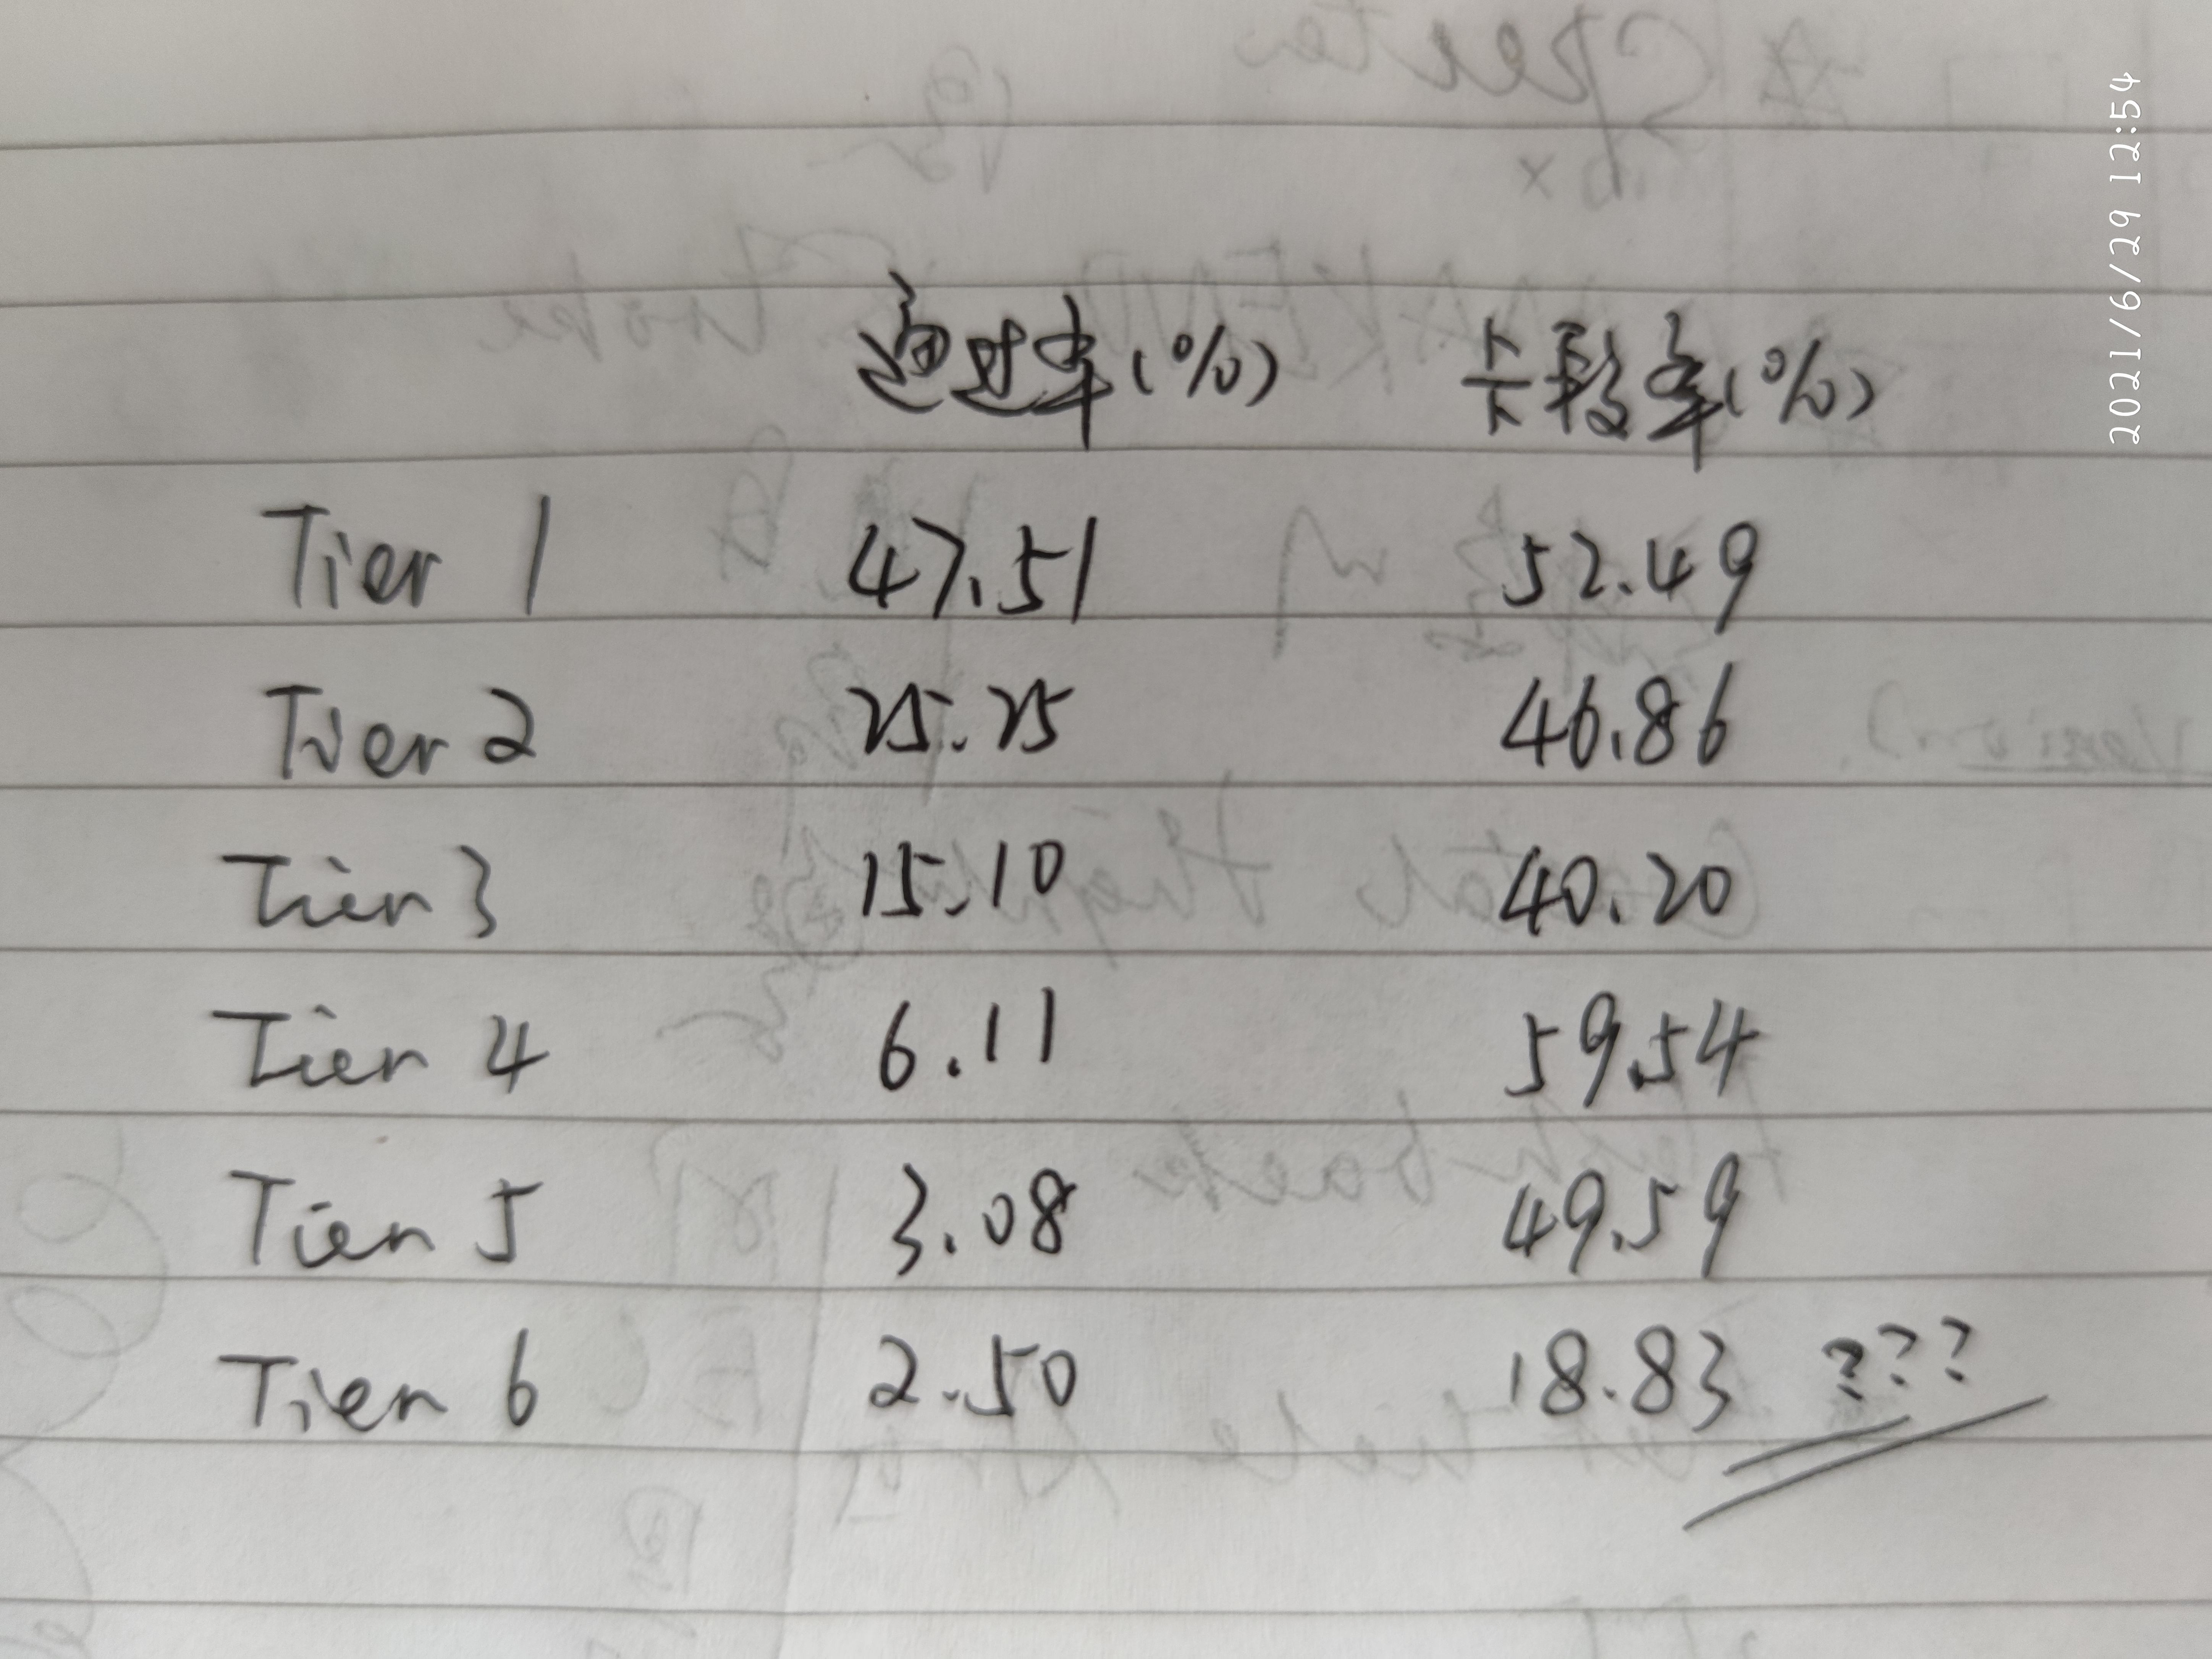 2021/6/29 12:54
通过率(%) 卡段率(%)
Tier 1 47.51 52.49
Tier 2 25.25 46.86
Tier 3 15.10 40.20
Tier 4 6.11 59.54
Tier 5 3.08 49.59
Tier 6 2.50 18.83 ???